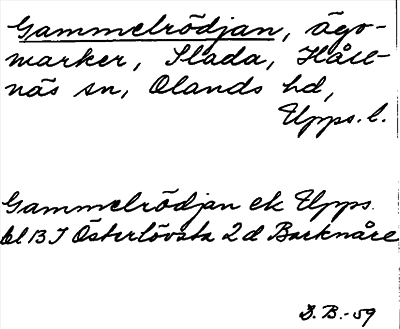 Gammelrödjan, ägo-
marker, Slada, Håll-
näs sn, Olands hd,
Upps. l.
Gammelrödjan ek Upps.
bl 13 I Österlövsta 2 d Barknåre
D. B. -59